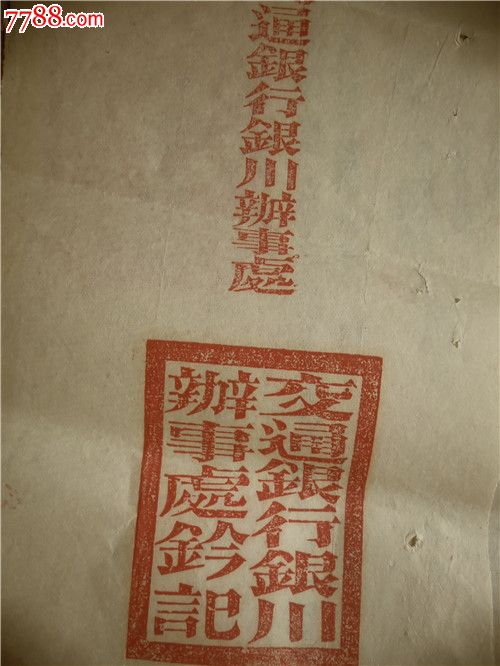 7788.com
通銀行銀川辦事處
交通銀行銀川
辦事處鈐記